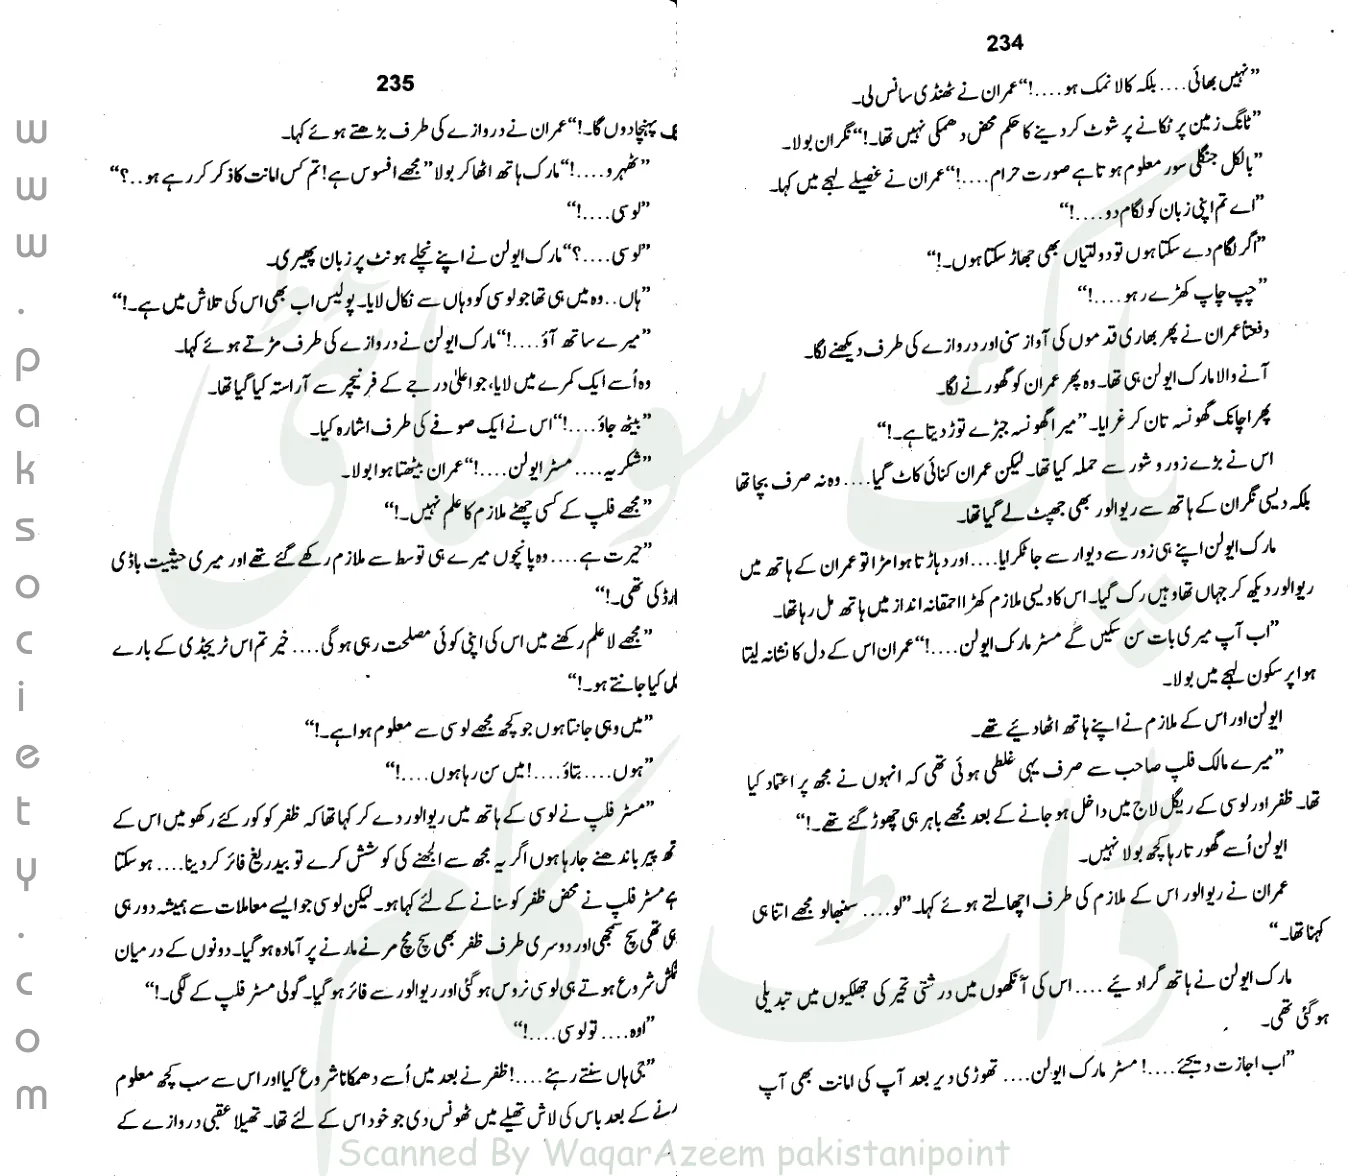 234
”نہیں بھائی.... بلکہ کالا نمک ہو....!“ عمران نے ٹھنڈی سانس لی۔
”ٹانگ زمین پر ٹکانے پر شوٹ کر دینے کا حکم محض دھمکی نہیں تھا۔!“ نگران بولا۔
”بالکل جنگلی سور معلوم ہوتا ہے صورت حرام....!“ عمران نے غصیلے لہجے میں کہا۔
”اے تم اپنی زبان کو لگام دو....!“
”اگر لگام دے سکتا ہوں تو دولتیاں بھی جھاڑ سکتا ہوں۔!“
”چپ چاپ کھڑے رہو....!“
دفعتاً عمران نے پھر بھاری قدموں کی آواز سنی اور دروازے کی طرف دیکھنے لگا۔
آنے والا مارک ایولن ہی تھا۔ وہ پھر عمران کو گھورنے لگا۔
پھر اچانک گھونسہ تان کر غرایا۔ ”میرا گھونسہ جبڑے توڑ دیتا ہے۔!“
اس نے بڑے زور و شور سے حملہ کیا تھا۔ لیکن عمران کنائی کاٹ گیا.... وہ نہ صرف بچا تھا
بلکہ دیسی نگران کے ہاتھ سے ریوالور بھی جھپٹ لے گیا تھا۔
مارک ایولن اپنے ہی زور سے دیوار سے جا ٹکرایا.... اور دہاڑتا ہوا مڑا تو عمران کے ہاتھ میں
ریوالور دیکھ کر جہاں تھا وہیں رک گیا۔ اس کا دیسی ملازم کھڑا احمقانہ انداز میں ہاتھ مل رہا تھا۔
”اب آپ میری بات سن سکیں گے مسٹر مارک ایولن....!“ عمران اس کے دل کا نشانہ لیتا
ہوا پر سکون لہجے میں بولا۔
ایولن اور اس کے ملازم نے اپنے ہاتھ اٹھا دیئے تھے۔
”میرے مالک فلپ صاحب سے صرف یہی غلطی ہوئی تھی کہ انہوں نے مجھ پر اعتماد کیا
تھا۔ ظفر اور لوسی کے ریگل لاج میں داخل ہو جانے کے بعد مجھے باہر ہی چھوڑ گئے تھے۔!“
ایولن اُسے گھورتا رہا کچھ بولا نہیں۔
عمران نے ریوالور اس کے ملازم کی طرف اچھالتے ہوئے کہا۔ ”لو.... سنبھالو مجھے اتنا ہی
کہنا تھا۔“
مارک ایولن نے ہاتھ گرا دیئے .... اس کی آنکھوں میں درشتی تحیر کی جھلکیوں میں تبدیلی
ہو گئی تھی۔
”اب اجازت دیجئے....! مسٹر مارک ایولن.... تھوڑی دیر بعد آپ کی امانت بھی آپ
235
پہنچا دوں گا۔!“ عمران نے دروازے کی طرف بڑھتے ہوئے کہا۔
”ٹھہرو....!“ مارک ہاتھ اٹھا کر بولا ”مجھے افسوس ہے! تم کس امانت کا ذکر کر رہے ہو..؟“
”لوسی....!“
”لوسی....؟“ مارک ایولن نے اپنے نچلے ہونٹ پر زبان پھیری۔
”ہاں.. وہ میں ہی تھا جو لوسی کو وہاں سے نکال لایا۔ پولیس اب بھی اس کی تلاش میں ہے۔!“
”میرے ساتھ آؤ....!“ مارک ایولن نے دروازے کی طرف مڑتے ہوئے کہا۔
وہ اُسے ایک کمرے میں لایا، جو اعلیٰ درجے کے فرنیچر سے آراستہ کیا گیا تھا۔
”بیٹھ جاؤ....!“ اس نے ایک صوفے کی طرف اشارہ کیا۔
”شکریہ.... مسٹر ایولن....!“ عمران بیٹھتا ہوا بولا۔
”مجھے فلپ کے کسی چھٹے ملازم کا علم نہیں۔!“
”حیرت ہے.... وہ پانچوں میرے ہی توسط سے ملازم رکھے گئے تھے اور میری حیثیت باڈی
گارڈ کی تھی۔!“
”مجھے لا علم رکھنے میں اس کی اپنی کوئی مصلحت رہی ہوگی.... خیر تم اس ٹریجڈی کے بارے
میں کیا جانتے ہو۔!“
”میں وہی جانتا ہوں جو کچھ مجھے لوسی سے معلوم ہوا ہے۔!“
”ہوں.... بتاؤ....! میں سن رہا ہوں....!“
”مسٹر فلپ نے لوسی کے ہاتھ میں ریوالور دے کر کہا تھا کہ ظفر کو کور کئے رکھو میں اس کے
ہاتھ پیر باندھنے جا رہا ہوں اگر یہ مجھ سے الجھنے کی کوشش کرے تو بیدریغ فائر کر دینا.... ہو سکتا
ہے مسٹر فلپ نے محض ظفر کو سنانے کے لئے کہا ہو۔ لیکن لوسی جو ایسے معاملات سے ہمیشہ دور ہی
رہی تھی سچ سمجھی اور دوسری طرف ظفر بھی سچ مچ مرنے مارنے پر آمادہ ہو گیا۔ دونوں کے درمیان
شروع ہوتے ہی لوسی نروس ہو گئی اور ریوالور سے فائر ہو گیا۔ گولی مسٹر فلپ کے لگی۔!“
”اوہ.... تو لوسی....!“
”جی ہاں سنتے رہئے....! ظفر نے بعد میں اُسے دھمکانا شروع کیا اور اس سے سب کچھ معلوم
کرنے کے بعد باس کی لاش تھیلے میں ٹھونس دی جو خود اس کے لئے تھا۔ تھیلا عقبی دروازے کے
www.paksociety.com
پاک سوسائٹی
ڈاٹ کام
Scanned By WaqarAzeem pakistanipoint